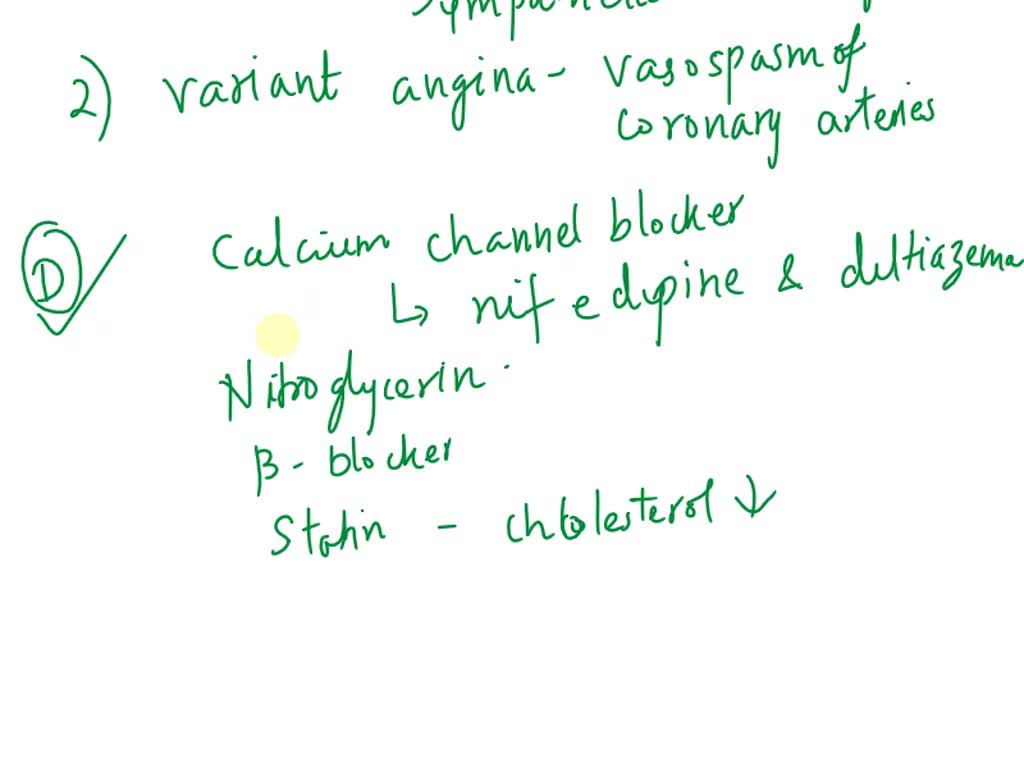 2) variant angina - vasospasm of
coronary arteries
D Calcium channel blocker
↳ nifedipine & diltiazema
Nitroglycerin
β - blocker
Statin - chtolesterol ↓